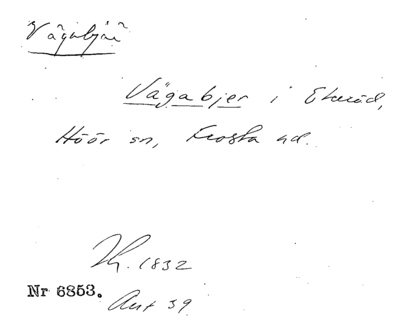 Vägabjär
Vägabjer i Ekeröd,
Höör sn, Frosta hd.
Th. 1832
Nr 6853. Avt 39